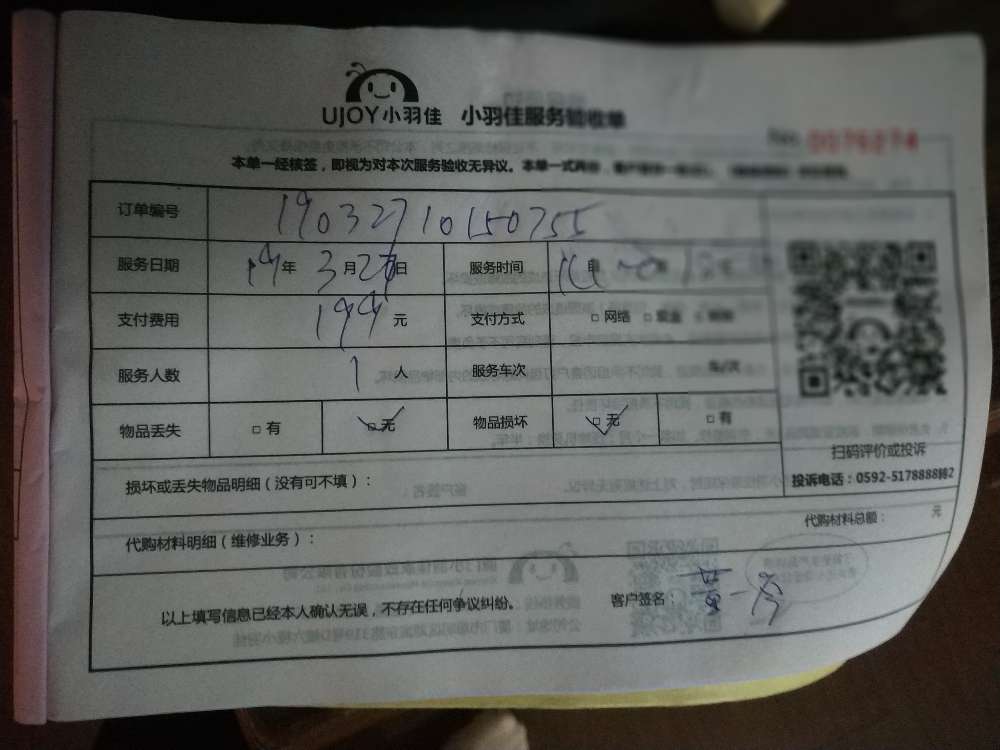 UJOY小羽佳 小羽佳服务验收单
No. 0076274
本单一经核签，即视为对本次服务验收无异议。本单一式两份，
订单编号 19032710150755
服务日期 19年3月27日 服务时间
支付费用 199元 支付方式 □ 网络 □ 现金 □
服务人数 1人 服务车次 车/次
物品丢失 □ 有 ☑ 无 物品损坏 ☑ 无 □ 有
扫码评价或投诉
投诉电话：0592-5178888转2
损坏或丢失物品明细（没有可不填）：
代购材料明细（维修业务）： 代购材料总额： 元
以上填写信息已经本人确认无误，不存在任何争议纠纷。 客户签名：